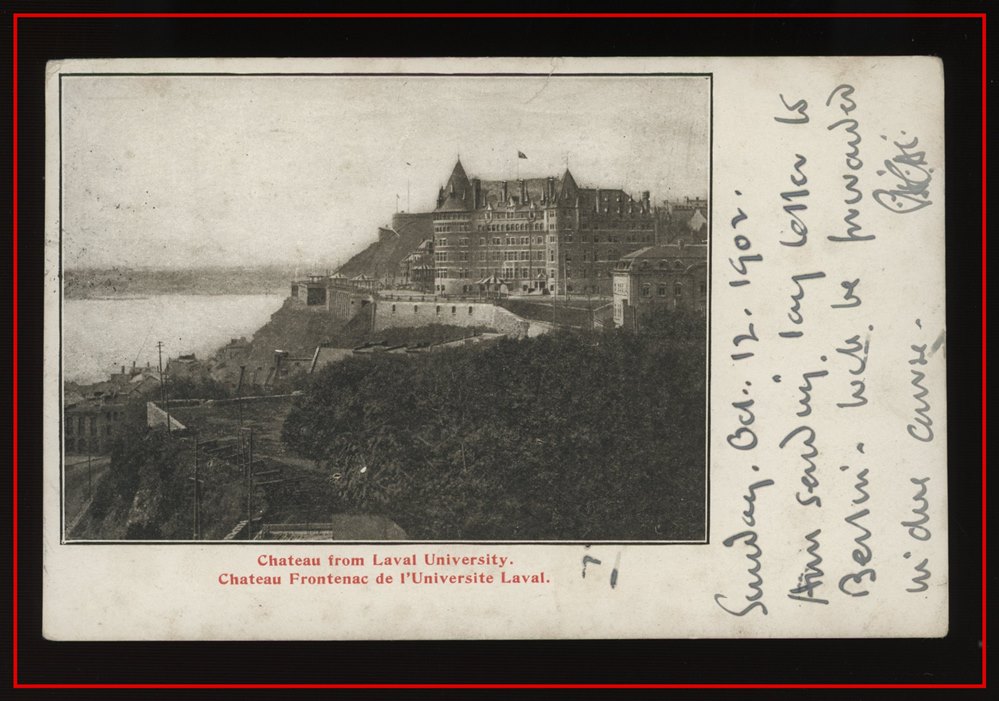 Chateau from Laval University.
Chateau Frontenac de l'Universite Laval.
Sunday. Oct. 12. 1902.
Am sending long letter to
Berlin. will be forwarded
in due course.